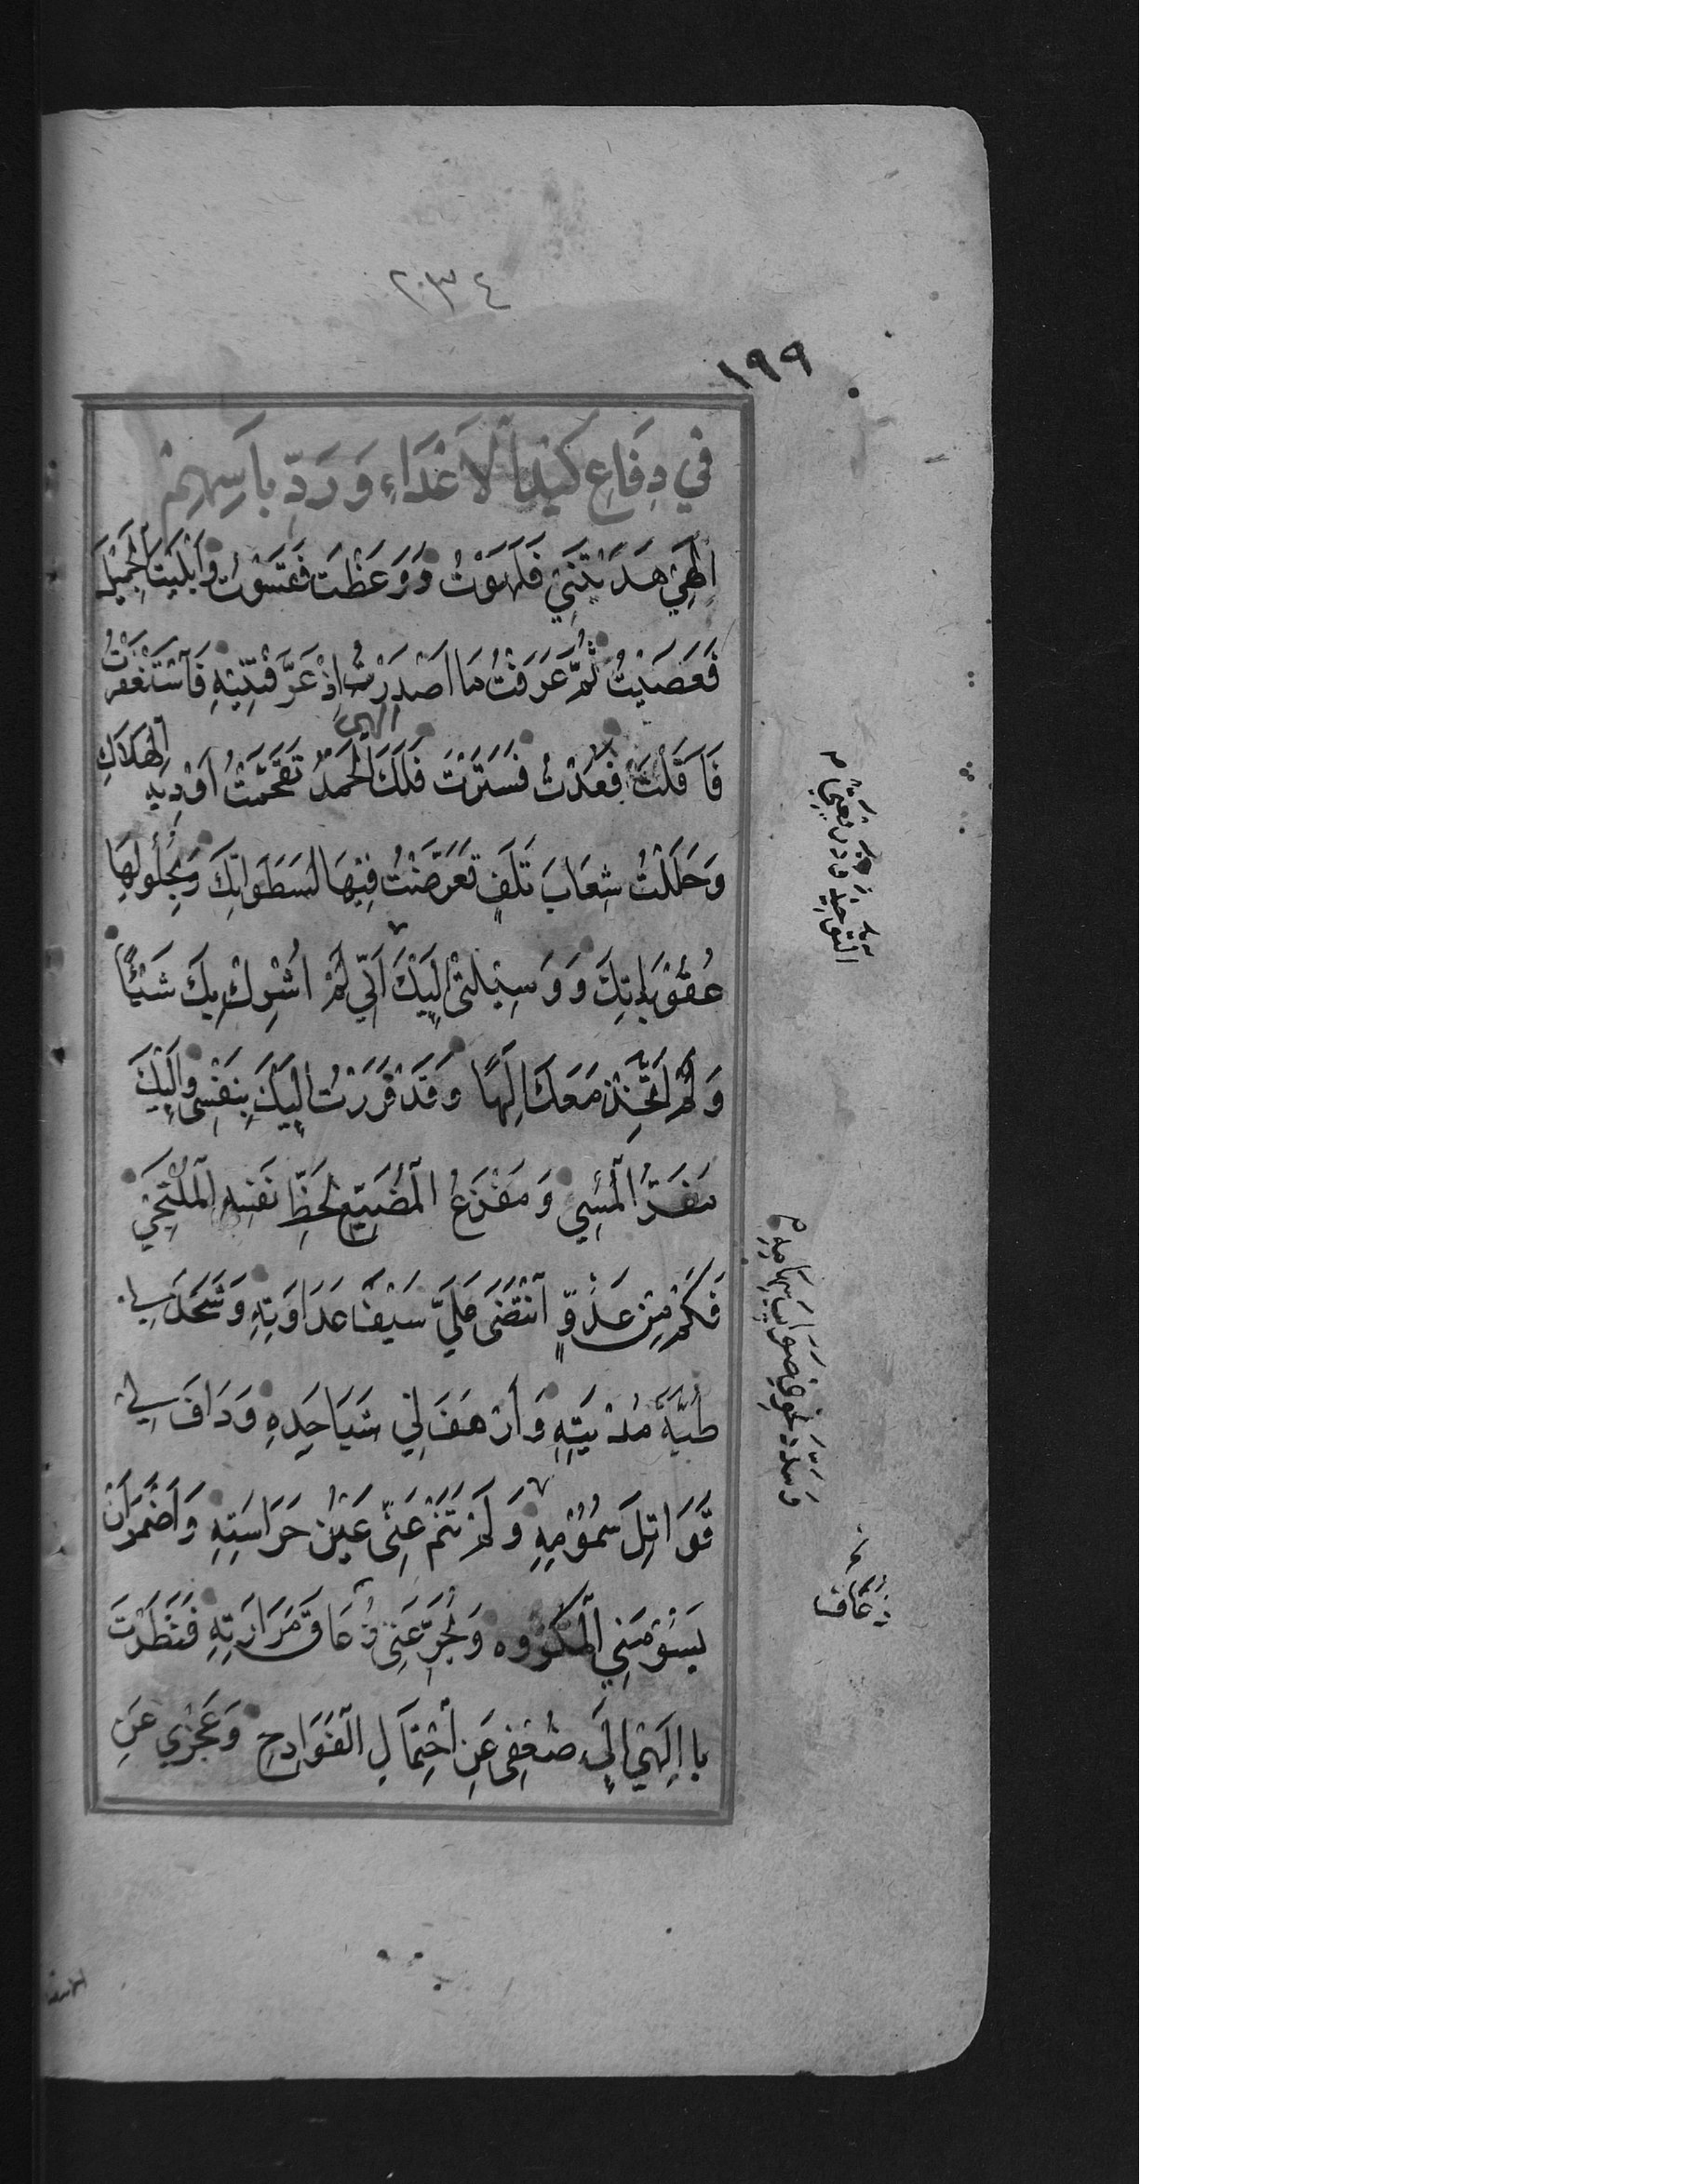 ٢٣٤
١٩٩
في دِفَاعِ كَيْدِ اْلاَعْدَاءِ وَ رَدِّ بَاسِهِمْ
اِلٰهِي هَدَيْتَنِي فَلَهَوْتُ وَ وَعَظْتَ فَقَسَوْتُ وَ اَبْلَيْتَ اْلجَمِيْلَ
فَعَصَيْتُ ثُمَّ عَرَفْتُ مَا اَصْدَرْتَ اِذْ عَرَّفْتَنِيْهِ فَاسْتَغْفَرْتُ
فَاَقَلْتَ فَعُدْتُ فَسَتَرْتَ فَلَكَ اْلحَمْدُ الهي تَقَحَّمْتُ اَوْدِيَةَ الْهَلاَكِ
وَ حَلَلْتُ شِعَابَ تَلَفٍ تَعَرَّضْتُ فِيْهَا لِسَطَوَاتِكَ وَ بِحُلُولِهَا
عُقُوْبَاتِكَ وَ وَسِيْلَتِيْ اِلَيْكَ اَنِّي لَمْ اُشْرِكْ بِكَ شَيْئًا
وَ لَمْ اَتَّخِذْ مَعَكَ اِلٰهًا وَ قَدْ فَرَرْتُ اِلَيْكَ بِنَفْسِي وَ اِلَيْكَ
مَفَرُّ اْلمُسِي وَ مَفْزَعُ اْلمُضَيِّعِ لِحَظِّ نَفْسِهِ اْلمُلْتَجِي
فَكَمْ مِنْ عَدُوٍّ اَنْتَضَى عَلَيَّ سَيْفَ عَدَاوَتِهِ وَ شَحَذَ لِي
ظُبَّةَ مُدْيَتِهِ وَ اَرْهَفَ لِي شَبَا حَدِّهِ وَ دَافَ لِي
قَوَاتِلَ سُمُوْمِهِ وَ لَمْ تَنَمْ عَنِّي عَيْنُ حَرَاسَتِهِ وَ اَضْمَرَ اَنْ
يَسُوْمَنِي اْلمَكْرُوه وَ يُجَرِّعَنِي ذُعَاقَ مَرَارَتِهِ فَنَظَرْتَ
يا اِلٰهِي اِلَى ضَعْفِي عَنِ اْحْتِمَالِ اْلفَوَادِحِ وَ عَجْزِي عَنِ
وَ سَدَّدَ نَحْوِي صَوَائِبَ سِهَامِهِ
زعاق